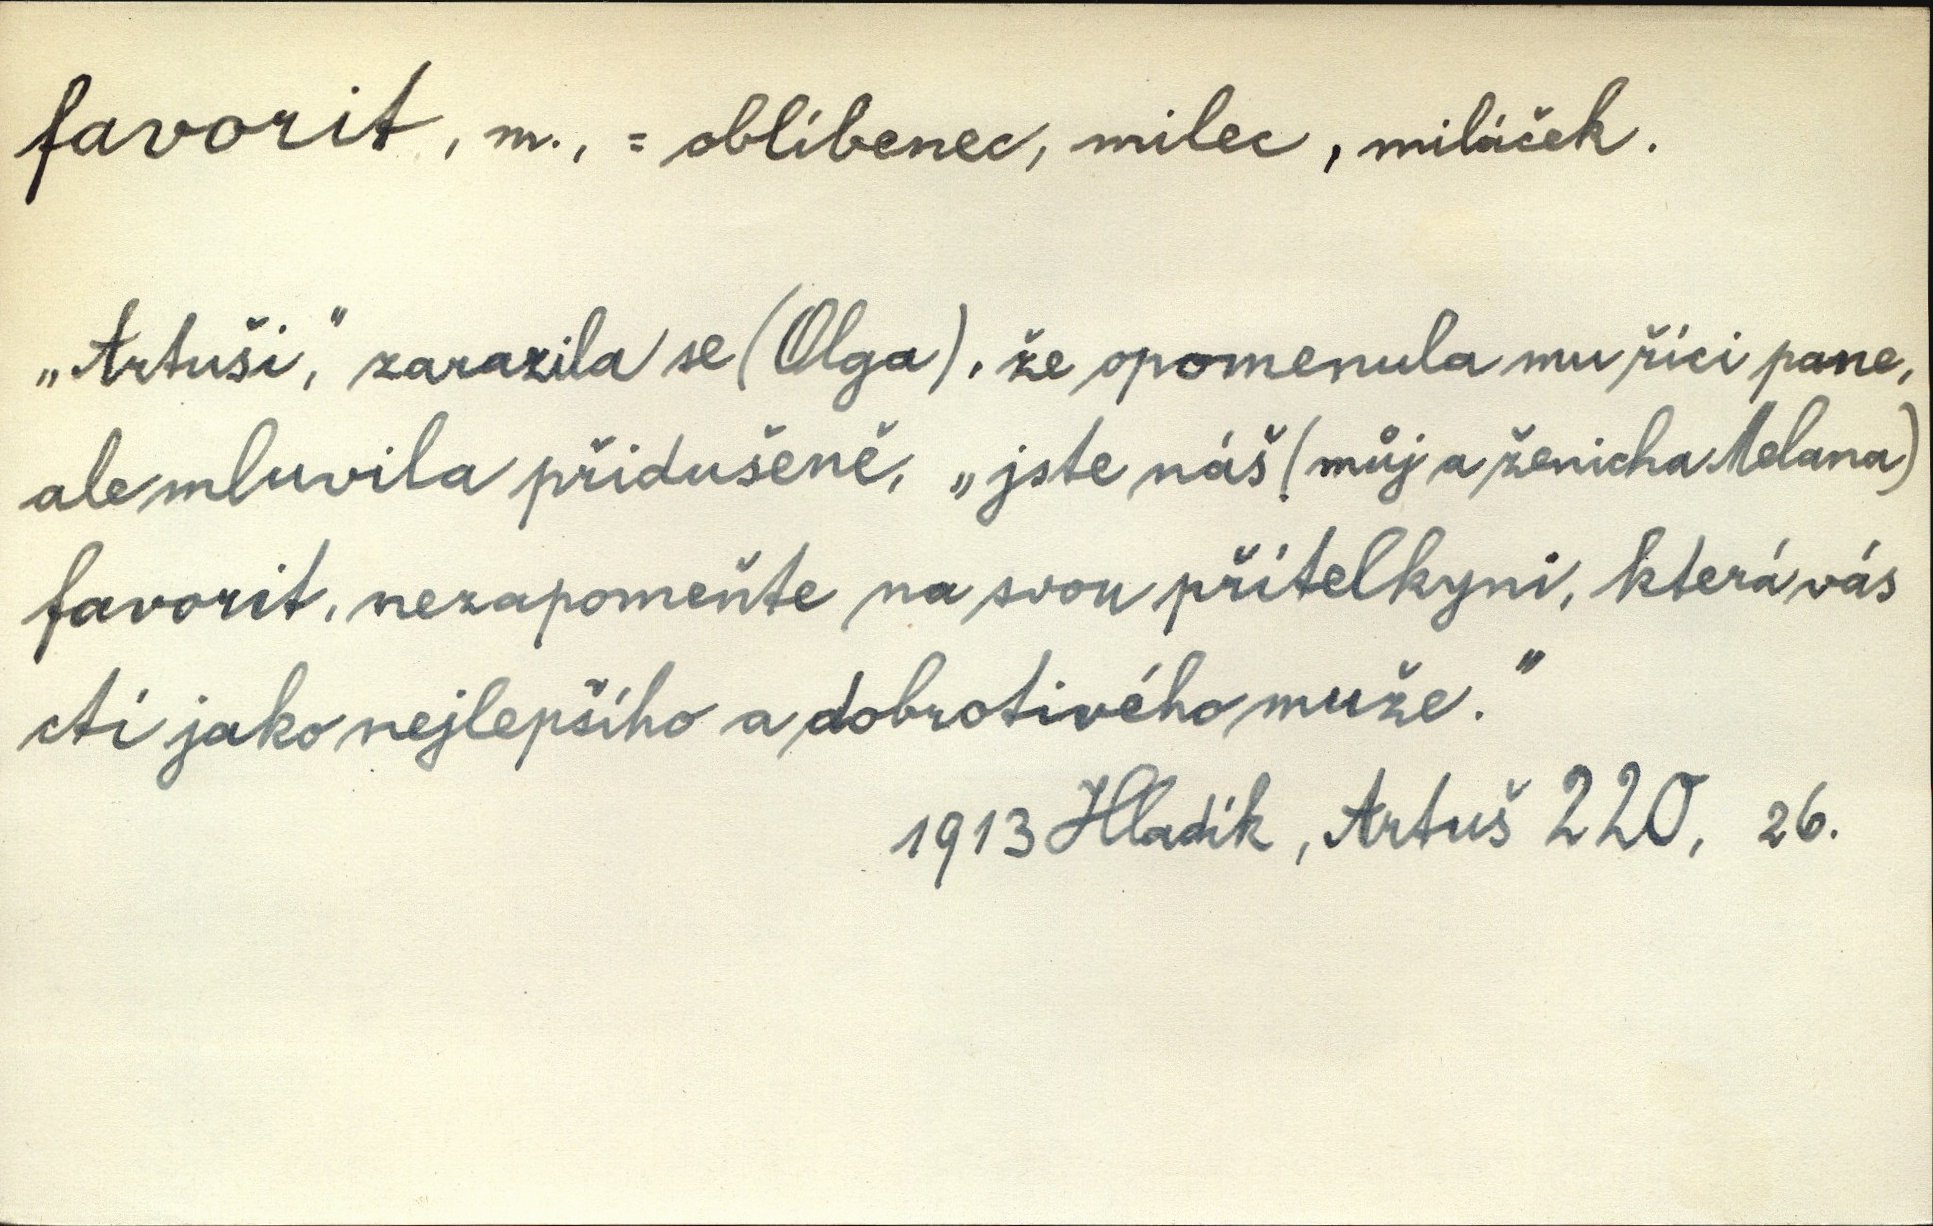 favorit, m., = oblíbenec, milec, miláček.
„Artuši,“ zarazila se (Olga), že opomenula mu říci pane,
ale mluvila přidušeně, „jste náš (můj a ženicha Melana)
favorit, nezapomeňte na svou přítelkyni, která vás
ctí jako nejlepšího a dobrotivého muže.“
1913 Hladík, Artuš 220, 26.